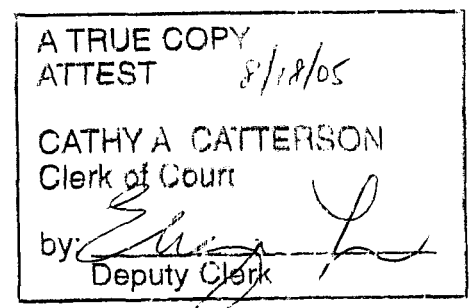 A TRUE COPY
ATTEST 8/18/05
CATHY A CATTERSON
Clerk of Court
by:
Deputy Clerk